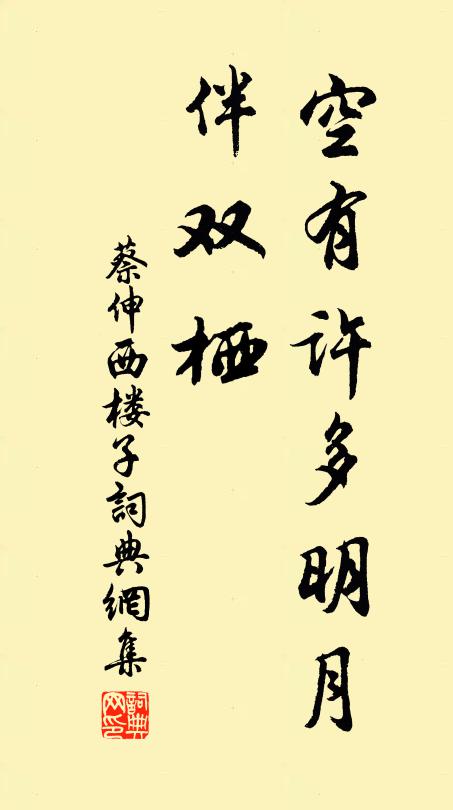 空有许多明月
伴双栖
蔡伸西楼子詞典網集
詞典
网印